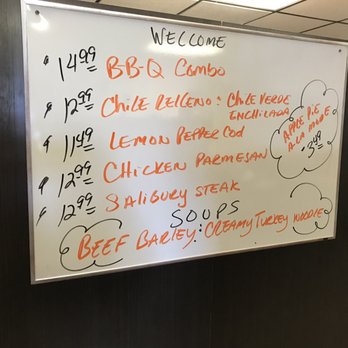 WELCOME
$14.99 B-B-Q COMBO
$12.99 CHILE RELLENO: CHILE VERDE
ENCHILADA
$11.99 LEMON PEPPER COD
$12.99 CHICKEN PARMESAN
$12.99 SALIBURY STEAK
APPLE PIE
A LA MODE
$3.99
SOUPS
BEEF BARLEY: CREAMY TURKEY NOODLE